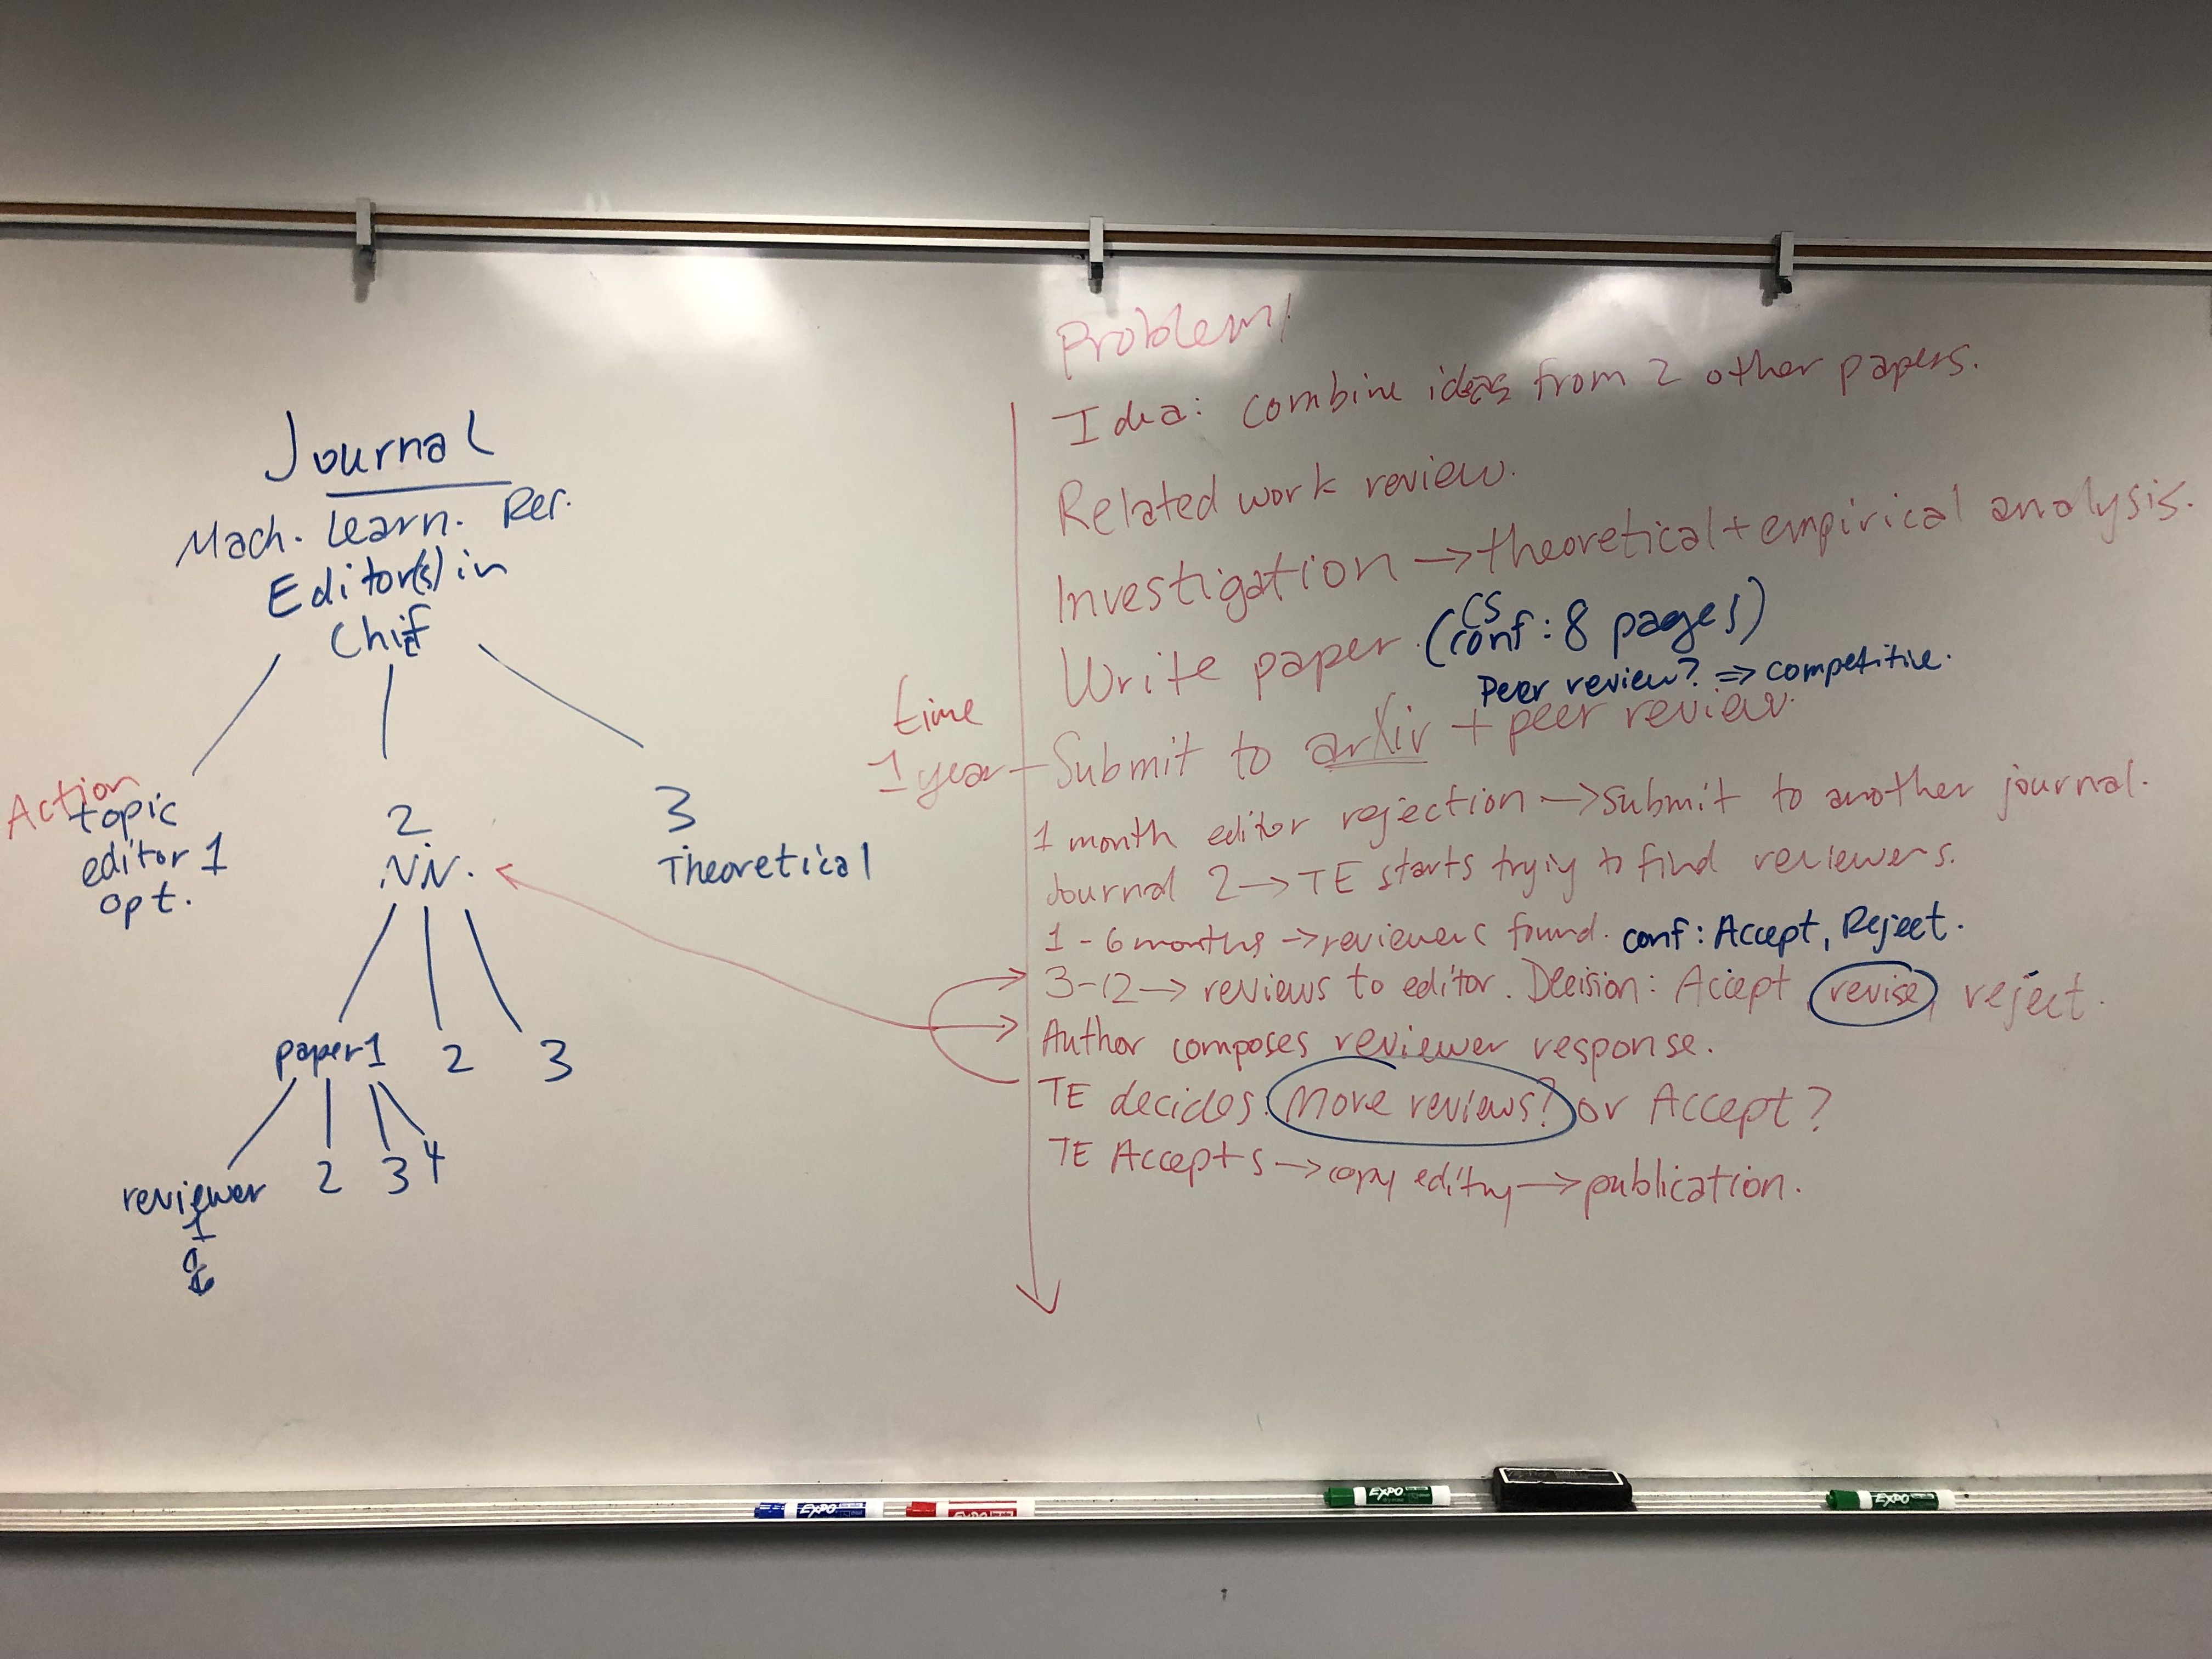 Journal
Mach. Learn. Res.
Editor(s) in
Chief
Action
topic
editor 1
opt.
2
N.N.
3
Theoretical
paper 1
2
3
reviewer
1
2
3
4
time
1 year
Problem
Idea: combine ideas from 2 other papers.
Related work review.
Investigation → theoretical + empirical analysis.
Write paper. (CS conf: 8 pages)
Peer review? ⇒ competitive.
Submit to arXiv + peer review.
1 month editor rejection → submit to another journal.
Journal 2 → TE starts tryig to find reviewers.
1-6 months → reviewers found. conf: Accept, Reject.
3-12 → reviews to editor. Decision: Accept, revise, reject.
Author composes reviewer response.
TE decides. More reviews? or Accept?
TE Accepts → copy editing → publication.
EXPO
EXPO
EXPO
EXPO